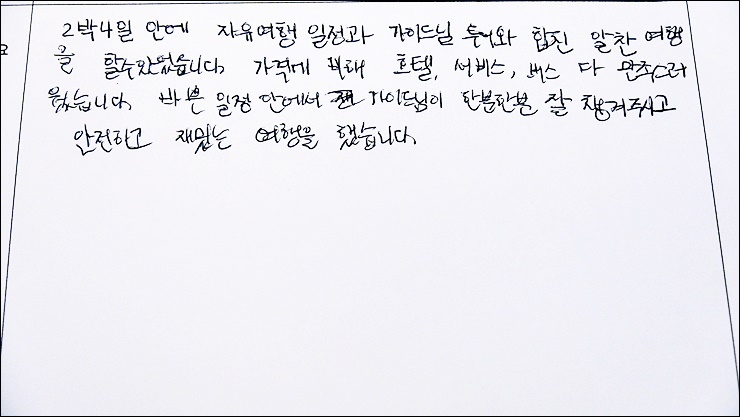 2박4일 안에 자유여행 일정과 가이드님 투어와 합진 알찬 여행
을 할수 있었습니다. 가격에 비해 호텔, 서비스, 버스 다 만족스러
웠습니다. 바쁜 일정 안에서 가이드님이 한분한분 잘 챙겨주시고
안전하고 재밌는 여행을 했습니다.